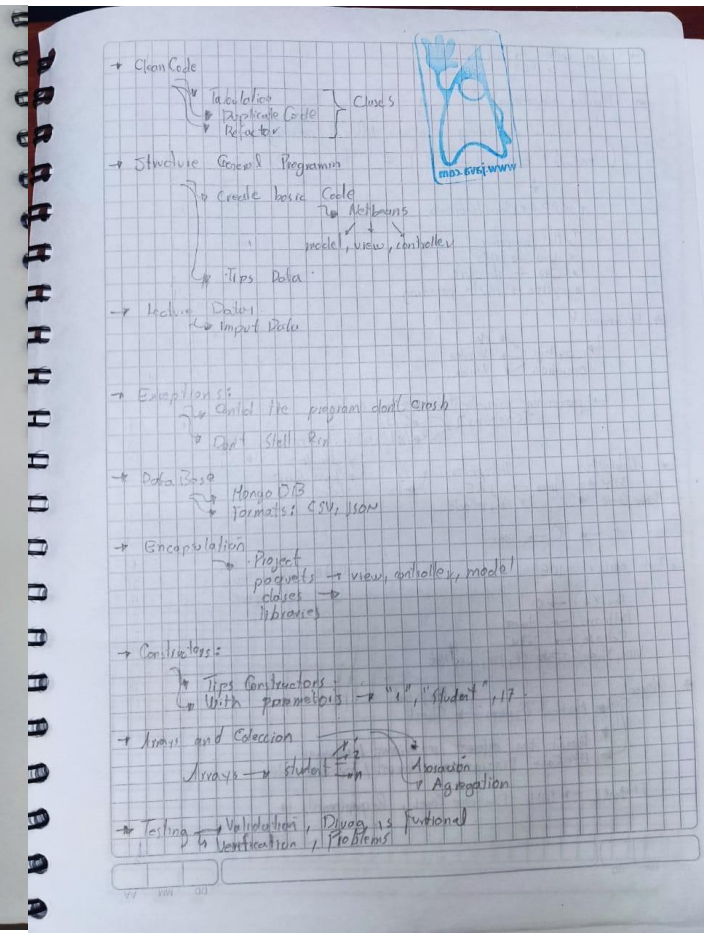 → Clean Code
Tabulation
Duplicate Code
Refactor
Clases
www.java.com
→ Structure General Programm
Create basic Code
Netbeans
model, view, controller
Tips Data
→ Data
Imput Data
→ Exceptions:
the program don't crash
Don't Run
→ Data Base
Mongo DB
Formats: CSV, JSON
→ Encapsulation
Project
paquets → view, controller, model
clases →
libraries
→ Constructors:
Tips Constructors
With parameters → "1", "student", 17
→ Arrays and Coleccion
Arrays → student 1 2 n
Agregation
→ Testing → Validation, is Funtional
Verification, Problems
DD MM AA